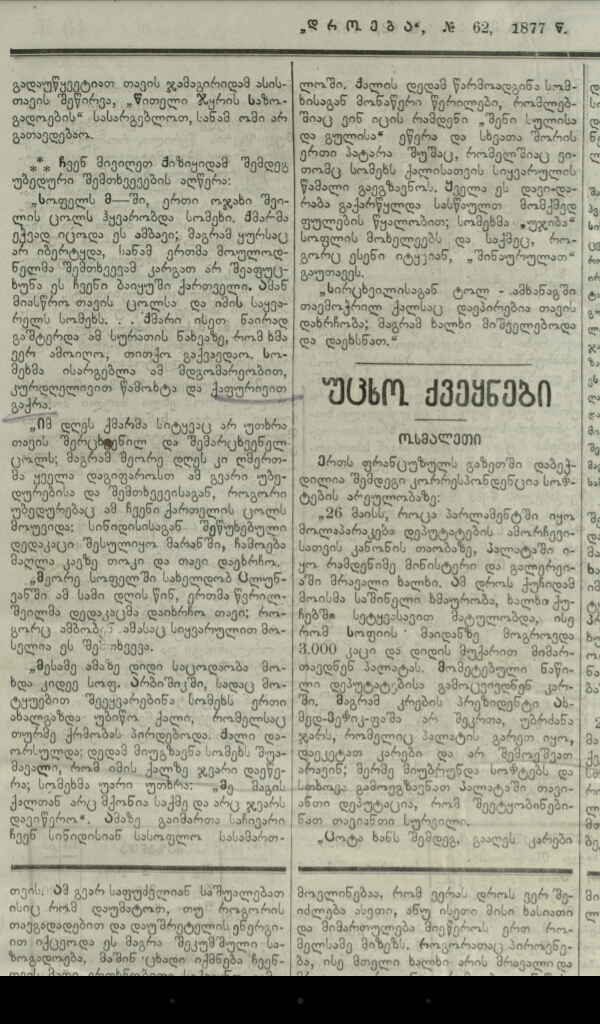 „დროება“, № 62, 1877 წ.
გადაუწყვეტიათ თავის ჯამაგირიდამ ასის-
თავის შეწირვა, „წითელი ჯვრის საზო-
გადოების“ სასარგებლოთ, სანამ ომი არ
გათავდებაო.
⁂ ჩვენ მივიღეთ ქიზიყიდამ შემდეგ
უბედური შემთხვევების აღწერა:
„სოფელს მ—ში, ერთი ოჯახი შვი-
ლის ცოლს ჰყვარობდა სომეხი. ქმარმა
ეჭვად იცოდა ეს ამბავი; მაგრამ ყურსაც
არ იბერტყდა, სანამ ერთმა მოულოდ-
ნელმა შემთხვევამ კარგათ არ შეაფუც-
ხუნა ეს ჩვენი ბაიყუში ქართველი. ამან
მიასწრო თავის ცოლსა და იმის საყვა-
რელს სომეხს. . . ქმარი ისეთ ნაირად
გაშტერდა ამ სურათის ნახვაზე, რომ ხმა
ვერ ამოიღო, თითქო გაქვავდაო. სო-
მეხმა ისარგებლა ამ მდგომარეობით,
კურდღელივით წამოხტა და ქაფურივით
გაქრა.
„იმ დღეს ქმარმა სიტყვაც არ უთხრა
თავის შერცხვენილ და შემარცხვენელ
ცოლს; მაგრამ მეორე დღეს კი ღმერთ-
მა ყველა დაგიფაროსთ ამ გვარი უბე-
დურებისა და შემთხვევისაგან, როგორი
უბედურებაც ამ ჩვენი ქართვლის ცოლს
მოუვიდა: სინიდისისაგან შეწუხებული
დედაკაცი შესულიყო მარანში, ჩამოება
მაღლა კავზე თოკი და თავი დაეხრჩო.
„მეორე სოფელში სახელდობ
ვანში ამ სამი დღის წინ, ერთმა წვრილ-
შვილმა დედაკაცმა დაიხრჩო თავი; რო-
გორც ამბობენ ამასაც სიყვარულით მო-
სვლია ეს შემთხვევა.
„მესამე ამაზე დიდი საცოდაობა მო-
ხდა კიდევ სოფ. არბიშიკში, სადაც მო-
ტყუებით შეეყვარებინა სომეხს ერთი
ახალგაზდა უბიწო ქალი, რომელსაც
თურმე ქრმობას პირდებოდა. ქალი და-
ორსულდა; დედამ მიუგზავნა სომეხს შუა-
მავალი, რომ იმის ქალზე ჯვარი დაეწე-
რა; სომეხმა უარი უთხრა: „მე მაგის
ქალთან არც მქონია საქმე და არც ჯვარს
დავიწერო“. ამაზე გაიმართა საჩივარი
ჩვენ სინიდისიან სასოფლო სასამართ-
ლოში. ქალის დედამ წარმოადგინა სომ-
ხისაგან მონაწერი წერილები, რომლებ-
შიაც ვინ იცის რამდენი „შენი სულისა
და გულისა“ ეწერა და სხვათა შორის
ერთი პატარა შუშაც, რომელშიაც ვი-
თომც სომეხს ქალისათვის სიყვარულის
წამალი გაეგზავნოს. ყველა ეს დავი-და-
რაბა გაქარწყლდა სასწაულთ მომქმედ
ფულების წყალობით; სომეხმა „უჯიბა“
სოფლის მოხელეებს და საქმეც, რო-
გორც ესენი იტყვიან, „შინაურულათ“
გაუთავეს.
„სირცხვილისაგან ტოლ-ამხანაგში
თავმოჭრილ ქალსაც დაეპირებია თავის
დახრჩობა; მაგრამ ხალხი მიშველებოდა
და დაეხსნათ.“
უცხო ქვეყნები
ოსმალეთი
ერთს ფრანცუზულს გაზეთში დაბეჭ-
დილია შემდეგი კორრესპონდენცია სოფ-
ტების არეულობაზე:
„26 მაისს, როცა პარლამენტში იყო
მოლაპარაკება დეპუტატების ამორჩევი-
სათვის კანონის თაობაზე, პალატაში ი-
ყო რამდენიმე მინისტერი და გალერეი-
აში მრავალი ხალხი. ამ დროს ქუჩიდამ
მოისმა საშინელი ხმაურობა, ხალხი ქუ-
ჩებში სეტყვასავით მატულობდა, ისე
რომ სოფიის მაიდანზე მოგროვდა
3.000 კაცი და დიდის მუქარით მიმარ-
თავდნენ პალატას. მომეტებული ნაწი-
ლი დეპუტატებისა გამოცვივდნენ კარ-
ში. მაგრამ კრების პრეზიდენტი ახ-
მედ-ვეფიკ-ფაშა არ შეკრთა, უბრძანა
ჯარს, რომელიც პალატის გარეთ იყო,
დაეკეტათ კარები და არ შემოეშვათ
არავინ; მერმე მიუბრუნდა სოფტებს და
სთხოვა გამოეგზავნათ პალატაში თავი-
ანთი დეპუტაცია, რომ შეეტყობინები-
ნათ თავიანთი სურვილი.
„ცოტა ხანს შემდეგ, გააღეს კარები
თვის. ამ გვარ საფუძვლიან საშუალებათ
ისიც რომ დაუმატოთ, თუ როგორის
თავგადადებით და დაუშრეტელის ენერგი-
ით იქცეოდა ეს მაგრა შეკუმშული სა-
ზოგადოება, მაშინ ცხადი იქმნება ჩვენ-
მოელინებაა, რომ ვერას დროს ვერ შე-
იძლება ასეთი, ანუ ისეთი მისი ხასიათი
და მიმართულება მიეწეროს ერთ რო-
მელსამე მიზეზს. როგორათაც პიროვნე-
ბა, ისე მთელი ხალხი არის მრავალი და